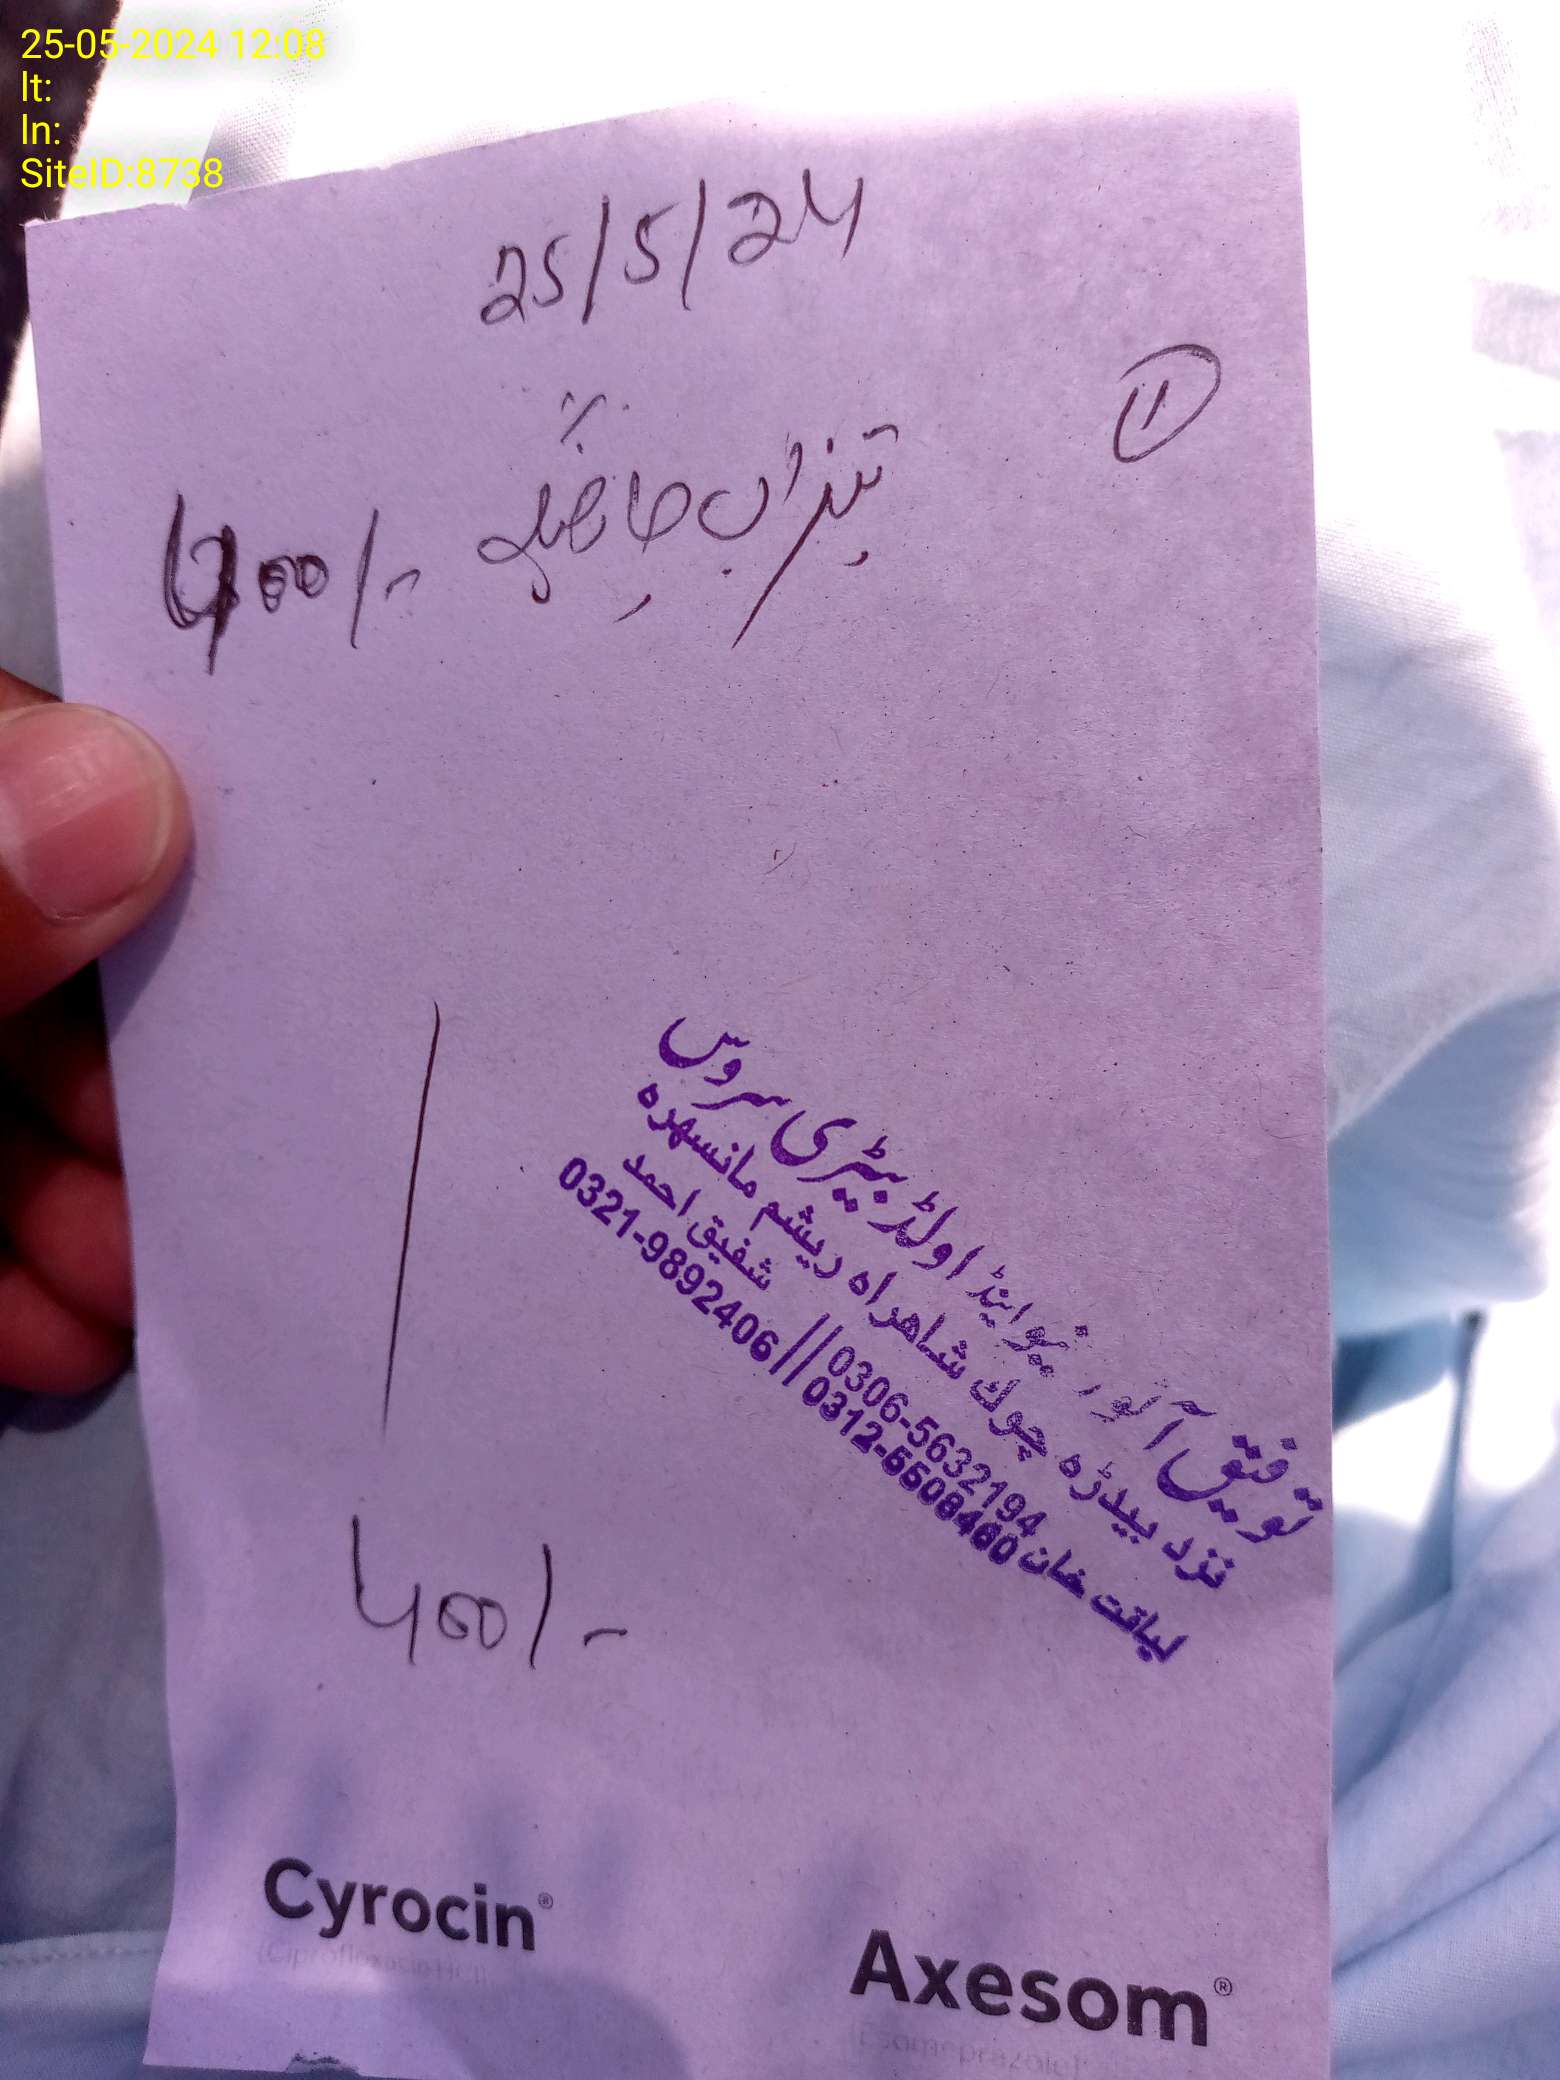 25-05-2024 12:08
lt:
ln:
SiteID:8738
25/5/24
11
تیزاب 400/-
توفیق آٹوز نیو اینڈ اولڈ بیٹری سروس
نزد بیدڑہ چوک شاہراہ ریشم مانسہرہ
شفیق احمد 0306-5632194
0321-9892406 || 0312-5508460 لیاقت خان
400/-
Cyrocin®
(Ciprofloxacin HCl)
Axesom®
(Esomeprazole)